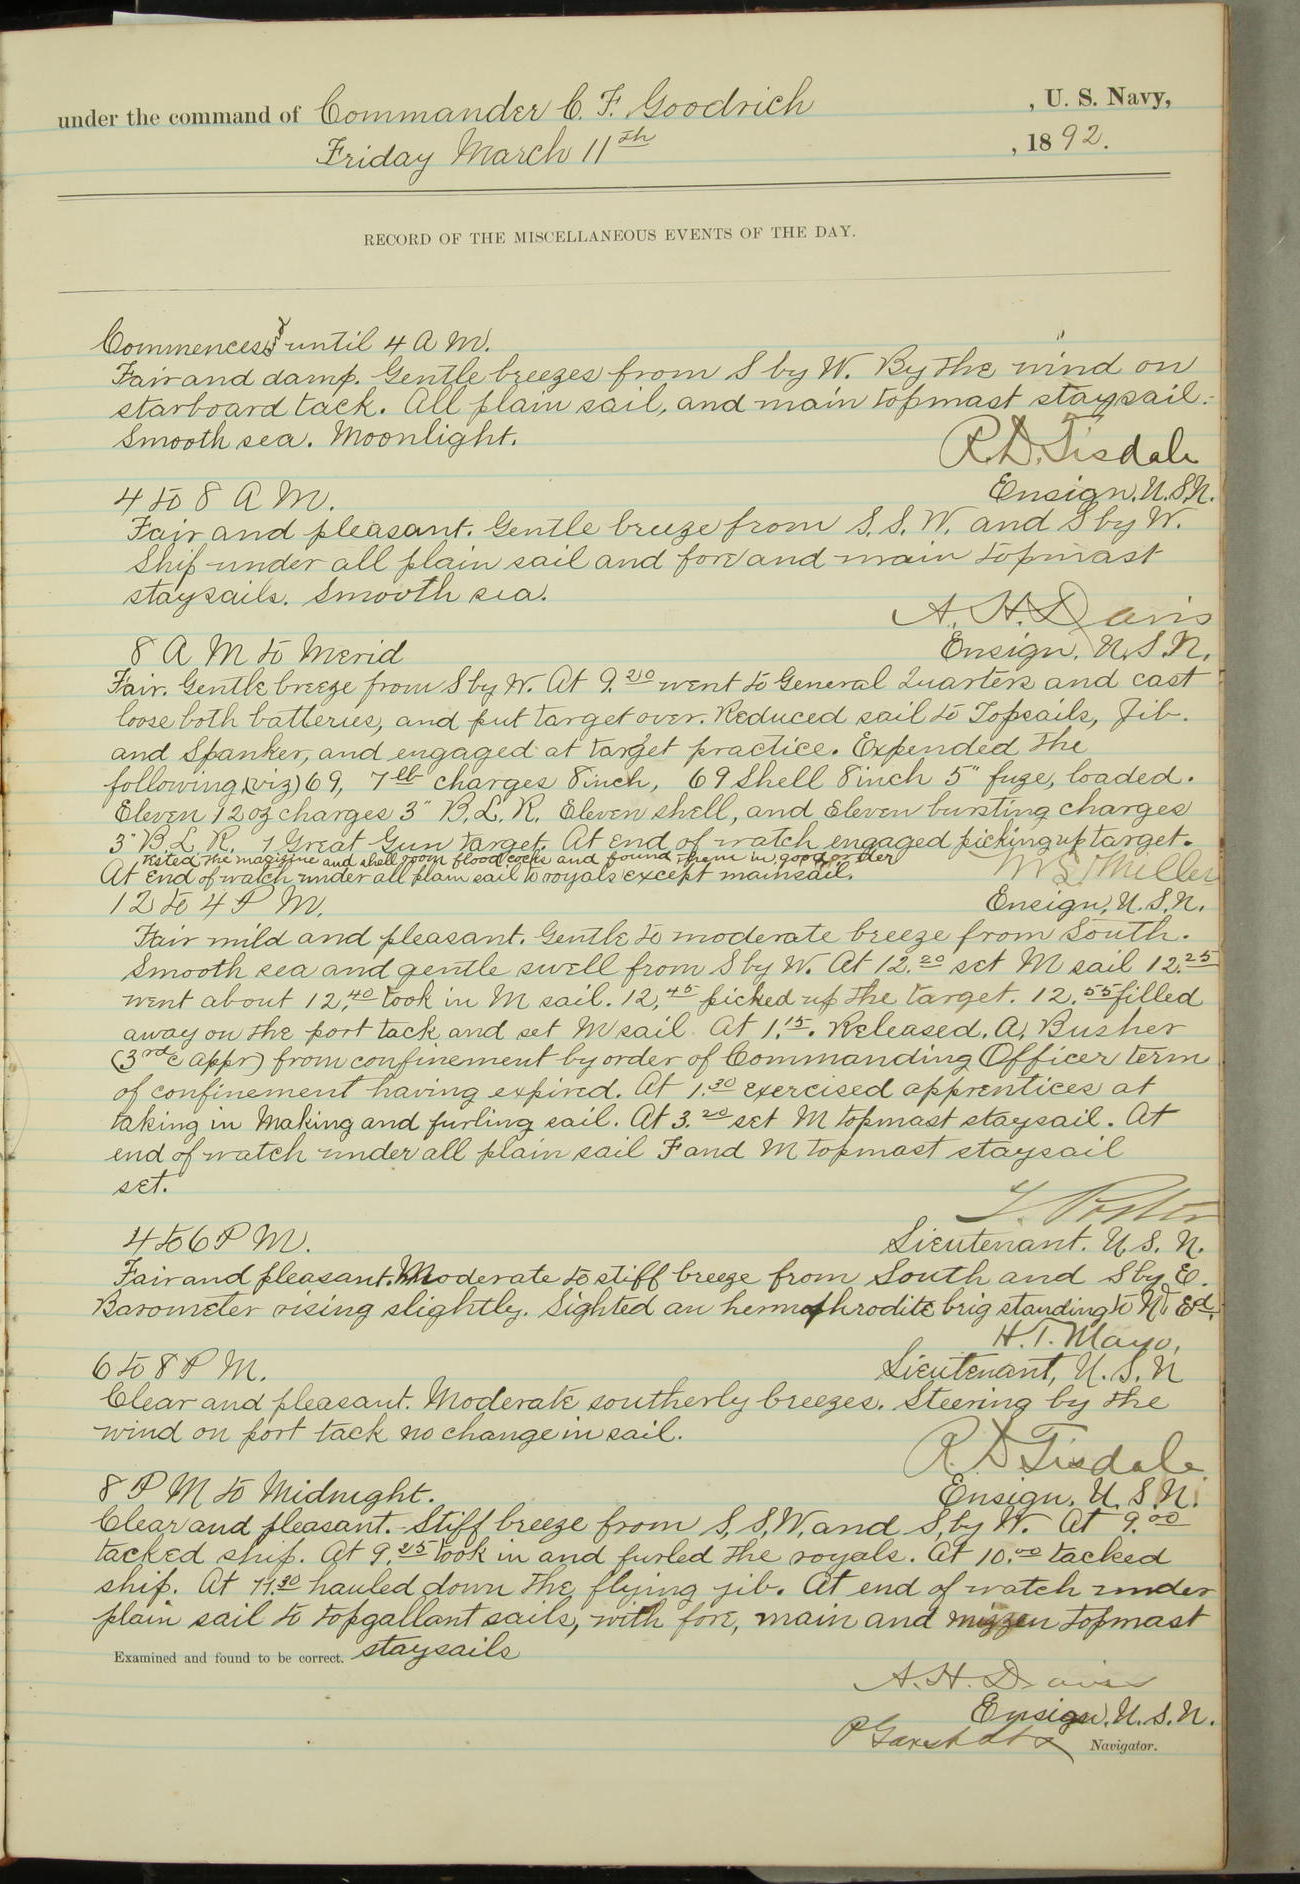 under the command of Commander C. F. Goodrich , U. S. Navy,
Friday March 11th , 1892.
RECORD OF THE MISCELLANEOUS EVENTS OF THE DAY.
Commences until 4 A M.
Fair and damp. Gentle breezes from S by W. By the wind on
starboard tack. All plain sail, and main topmast staysail.
Smooth sea. Moonlight.
R. D. Tisdale
Ensign, U.S.N.
4 to 8 A M.
Fair and pleasant. Gentle breeze from S. S. W. and S by W.
Ship under all plain sail and fore and main topmast
staysails. Smooth sea.
A. H. Davis
Ensign, U.S.N.
8 A M to Merid
Fair. Gentle breeze from S by W. At 9.20 went to General Quarters and cast
loose both batteries, and put target over. Reduced sail to Topsails, Jib.
and Spanker, and engaged at target practice. Expended the
following (viz) 69, 7lb charges 8 inch, 69 Shell 8 inch 5" fuze, loaded.
Eleven 12 oz charges 3" B. L. R. Eleven shell, and Eleven bursting charges
3" B. L. R. 1 Great Gun target. At end of watch engaged picking up target.
tested the magazine and shell room flood cocks and found them in good order
At end of watch under all plain sail to royals except mainsail.
W S Miller
Ensign, U.S.N.
12 to 4 P M.
Fair mild and pleasant. Gentle to moderate breeze from South.
Smooth sea and gentle swell from S by W. At 12.20 set M sail 12.25
went about 12.40 took in M sail. 12.45 picked up the target. 12.55 filled
away on the port tack and set M sail. At 1.15. Released. A. Busher
(3rd c appr) from confinement by order of Commanding Officer term
of confinement having expired. At 1.30 exercised apprentices at
taking in Making and furling sail. At 3.20 set M topmast staysail. At
end of watch under all plain sail F and M topmast staysail
set.
Lieutenant. U. S. N.
4 to 6 P M.
Fair and pleasant. Moderate to stiff breeze from South and S by E.
Barometer rising slightly. Sighted an hermaphrodite brig standing to Nd Ed.
H. T. Mayo,
Lieutenant, U. S. N
6 to 8 P M.
Clear and pleasant. Moderate southerly breezes. Steering by the
wind on port tack no change in sail.
R. D Tisdale
Ensign, U. S. N.
8 P M to Midnight.
Clear and pleasant. Stiff breeze from S. S. W. and S. by W. At 9.00
tacked ship. At 9.25 took in and furled the royals. At 10.00 tacked
ship. At 11.30 hauled down the flying jib. At end of watch under
plain sail to topgallant sails, with fore, main and mizzen topmast
staysails
Examined and found to be correct.
A. H. Davis
Ensign, U. S. N.
Navigator.